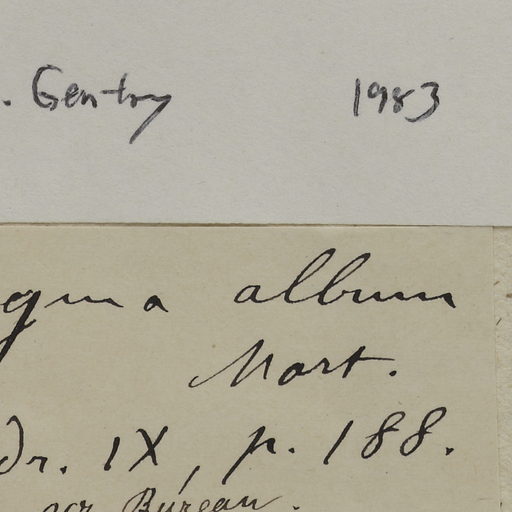 . Gentry 1983
gma album
Mart.
dr. IX, p. 188.
Bureau.